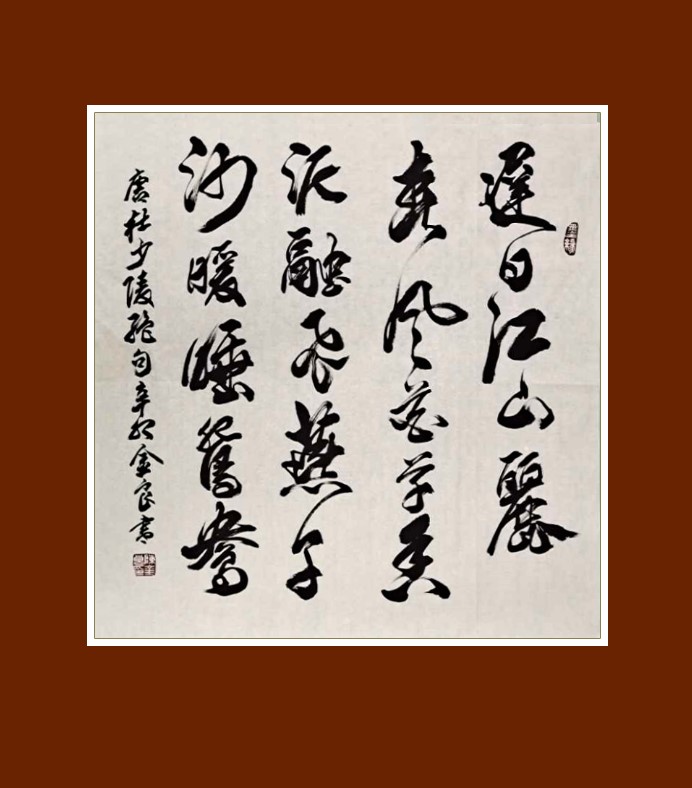 遲日江山麗
春風花草香
泥融飛燕子
沙暖睡鴛鴦
唐杜少陵絕句辛卯金良書